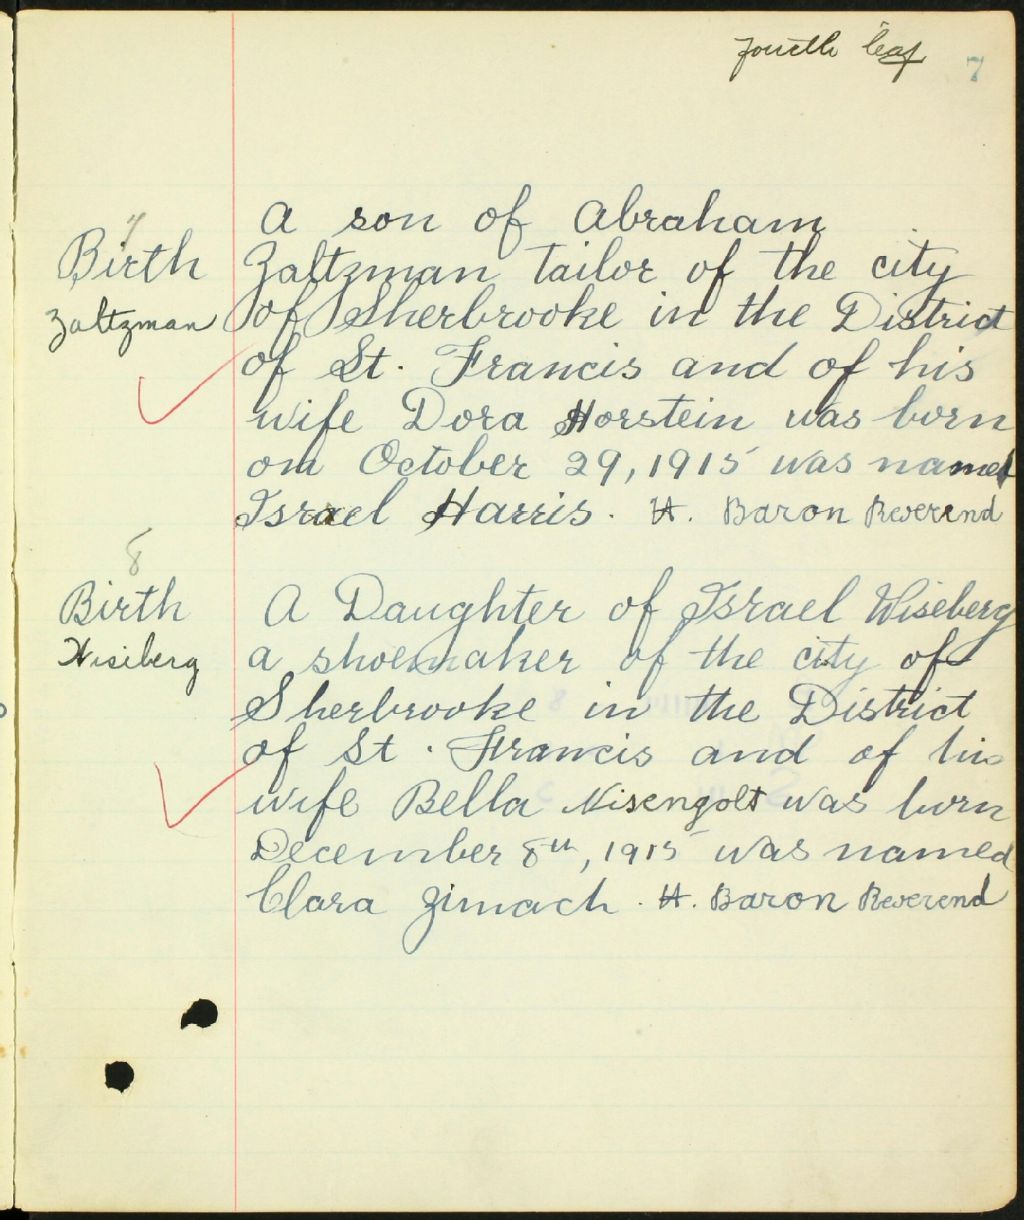 fourth leaf 7
7
A son of Abraham
Birth Zaltzman tailor of the city
Zaltzman of Sherbrooke in the District
of St. Francis and of his
wife Dora Horstein was born
on October 29, 1915 was named
Israel Harris. H. Baron Reverend
8
Birth A Daughter of Israel Wiseberg
Wiseberg a shoemaker of the city of
Sherbrooke in the District
of St. Francis and of his
wife Bella Nisengolt was born
December 8th, 1915 was named
Clara Zimach. H. Baron Reverend